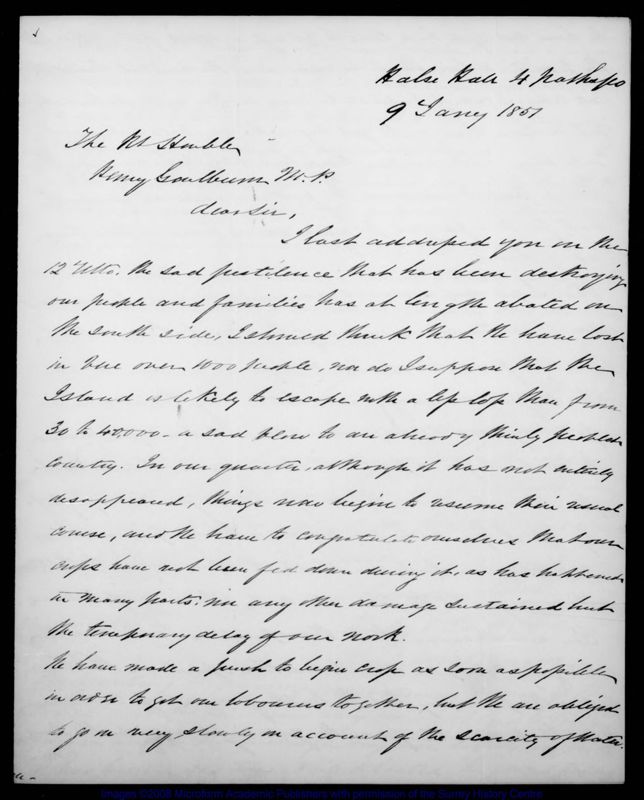 Halse Hall
9 Jany 1851
The Rt Honble
Henry Goulburn M.P.
dear Sir,
I last addressed you on the
12 Ulto. the sad pestilence that has been destroying
our people and families has at length abated on
the south side, I should think that We have lost
in Vere over 1000 people, nor do I suppose that the
Island is likely to escape with a less loss than from
30 to 40,000 - a sad blow to an already thinly peopled
country. In our quarter, although it has not entirely
disappeared, things now begin to resume their usual
course, and We have to congratulate ourselves that our
crops have not been fed down during it, as has happened
in many parts, nor any other damage sustained but
the temporary delay of our work.
We have made a push to begin crop as soon as possible
in order to get our labourers together, but We are obliged
to go on very slowly on account of the scarcity of Water.
Images ©2008 Microform Academic Publishers with permission of the Surrey History Centre